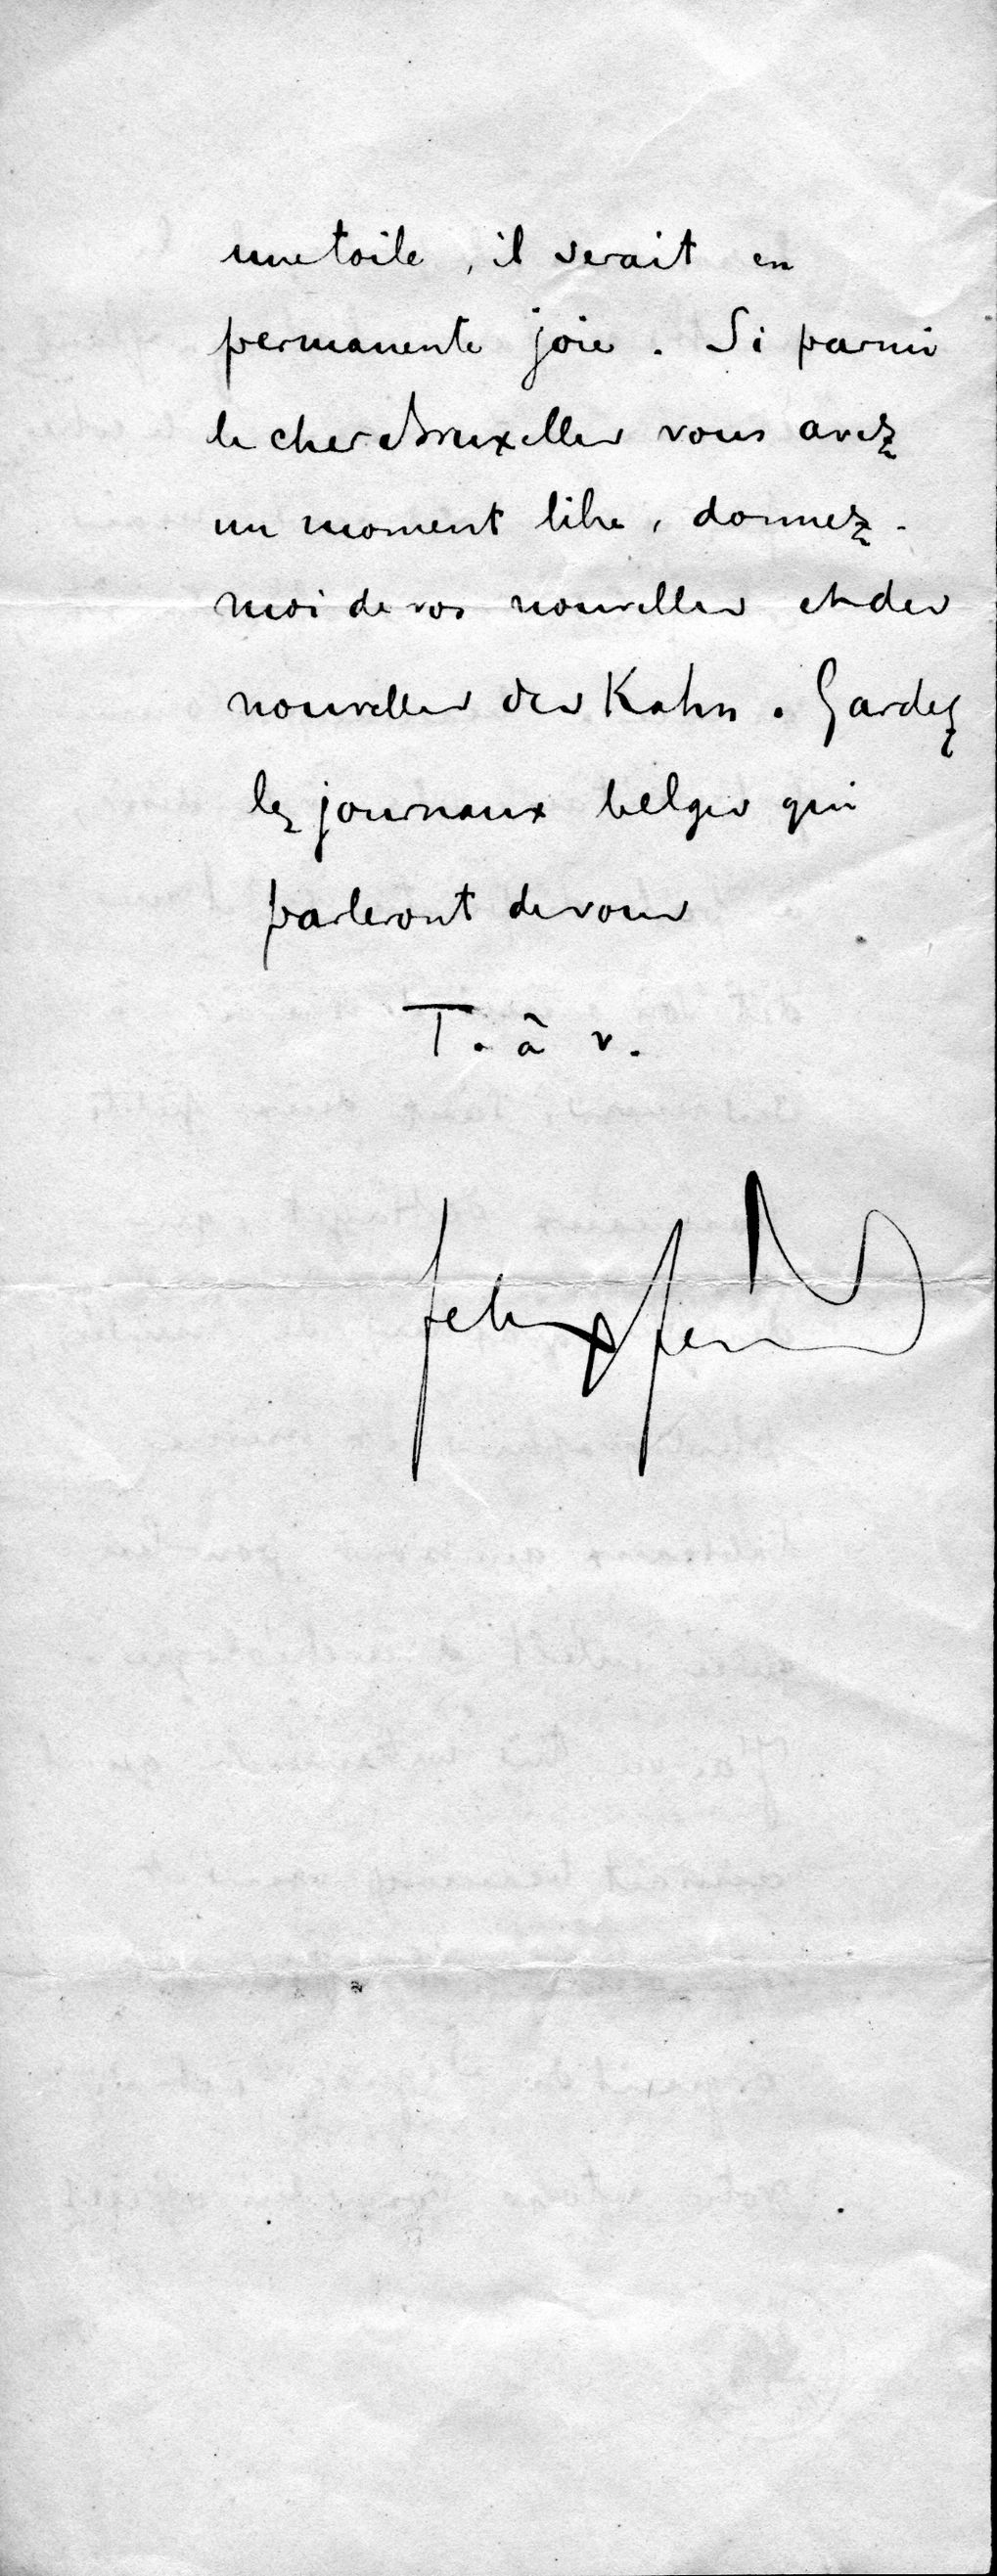 une toile, il serait en
permanente joie. Si parmi
le cher Bruxelles vous avez
un moment libre, donnez-
moi de vos nouvelles et des
nouvelles des Kahn. Gardez
les journaux belges qui
parleront de vous
T. à v.
felix feneon